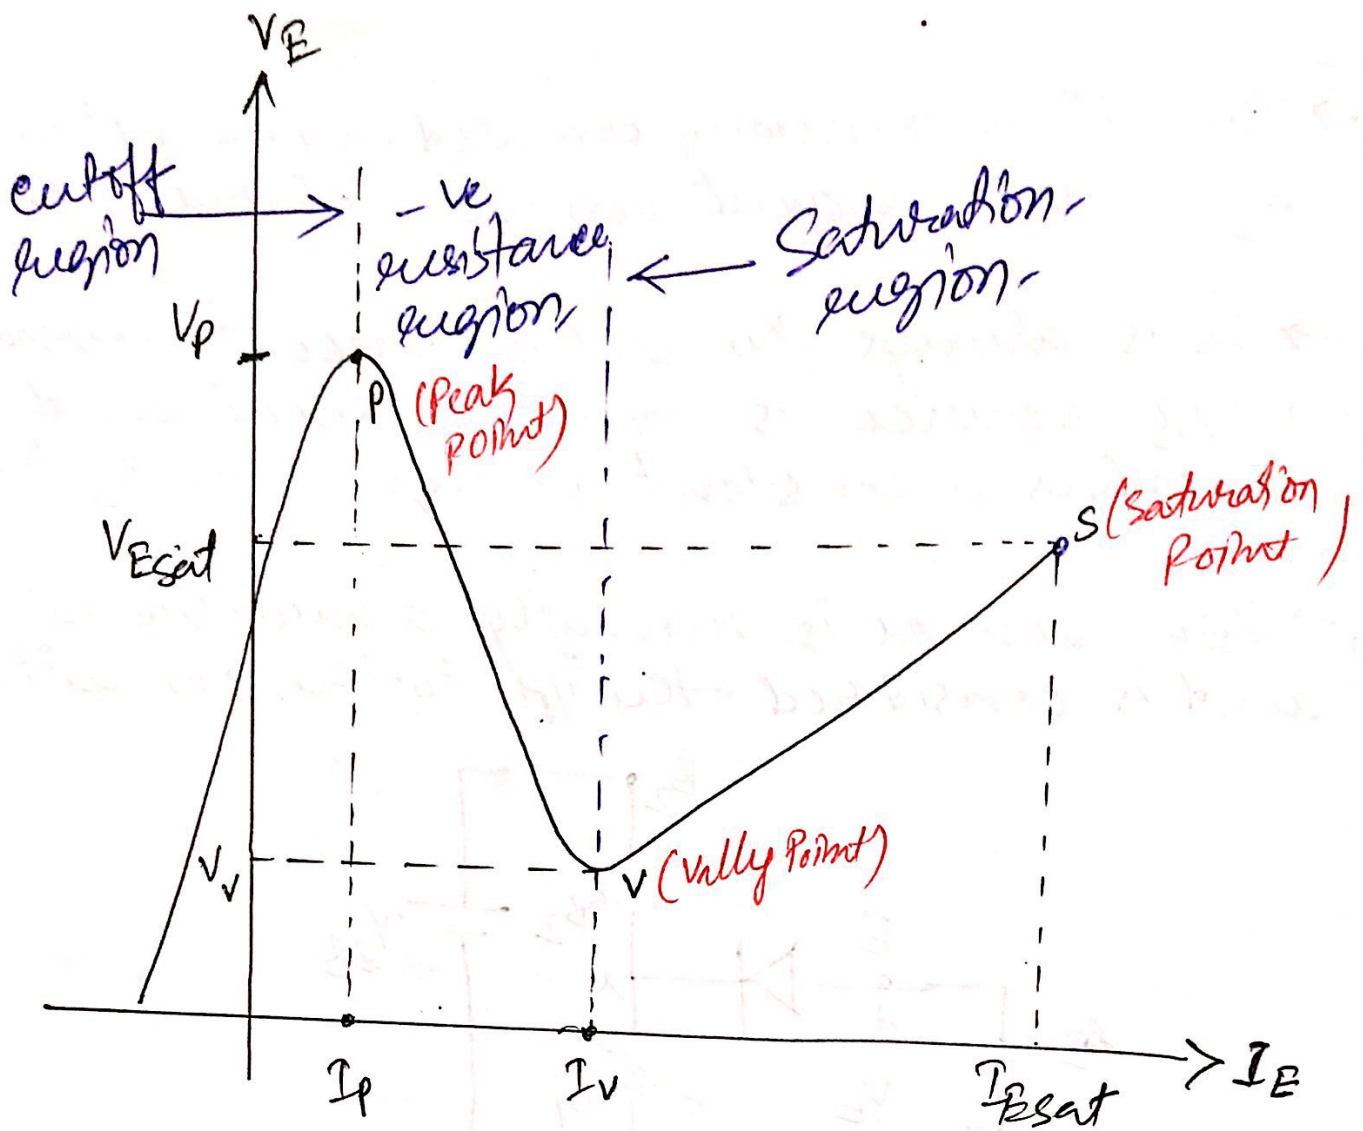 VE
cutoff
region
-ve
resistance
region
Saturation
region
Vp
P (Peak
Point)
VEsat
S (Saturation
Point)
Vv
V (Vally Point)
Ip
Iv
IEsat
IE